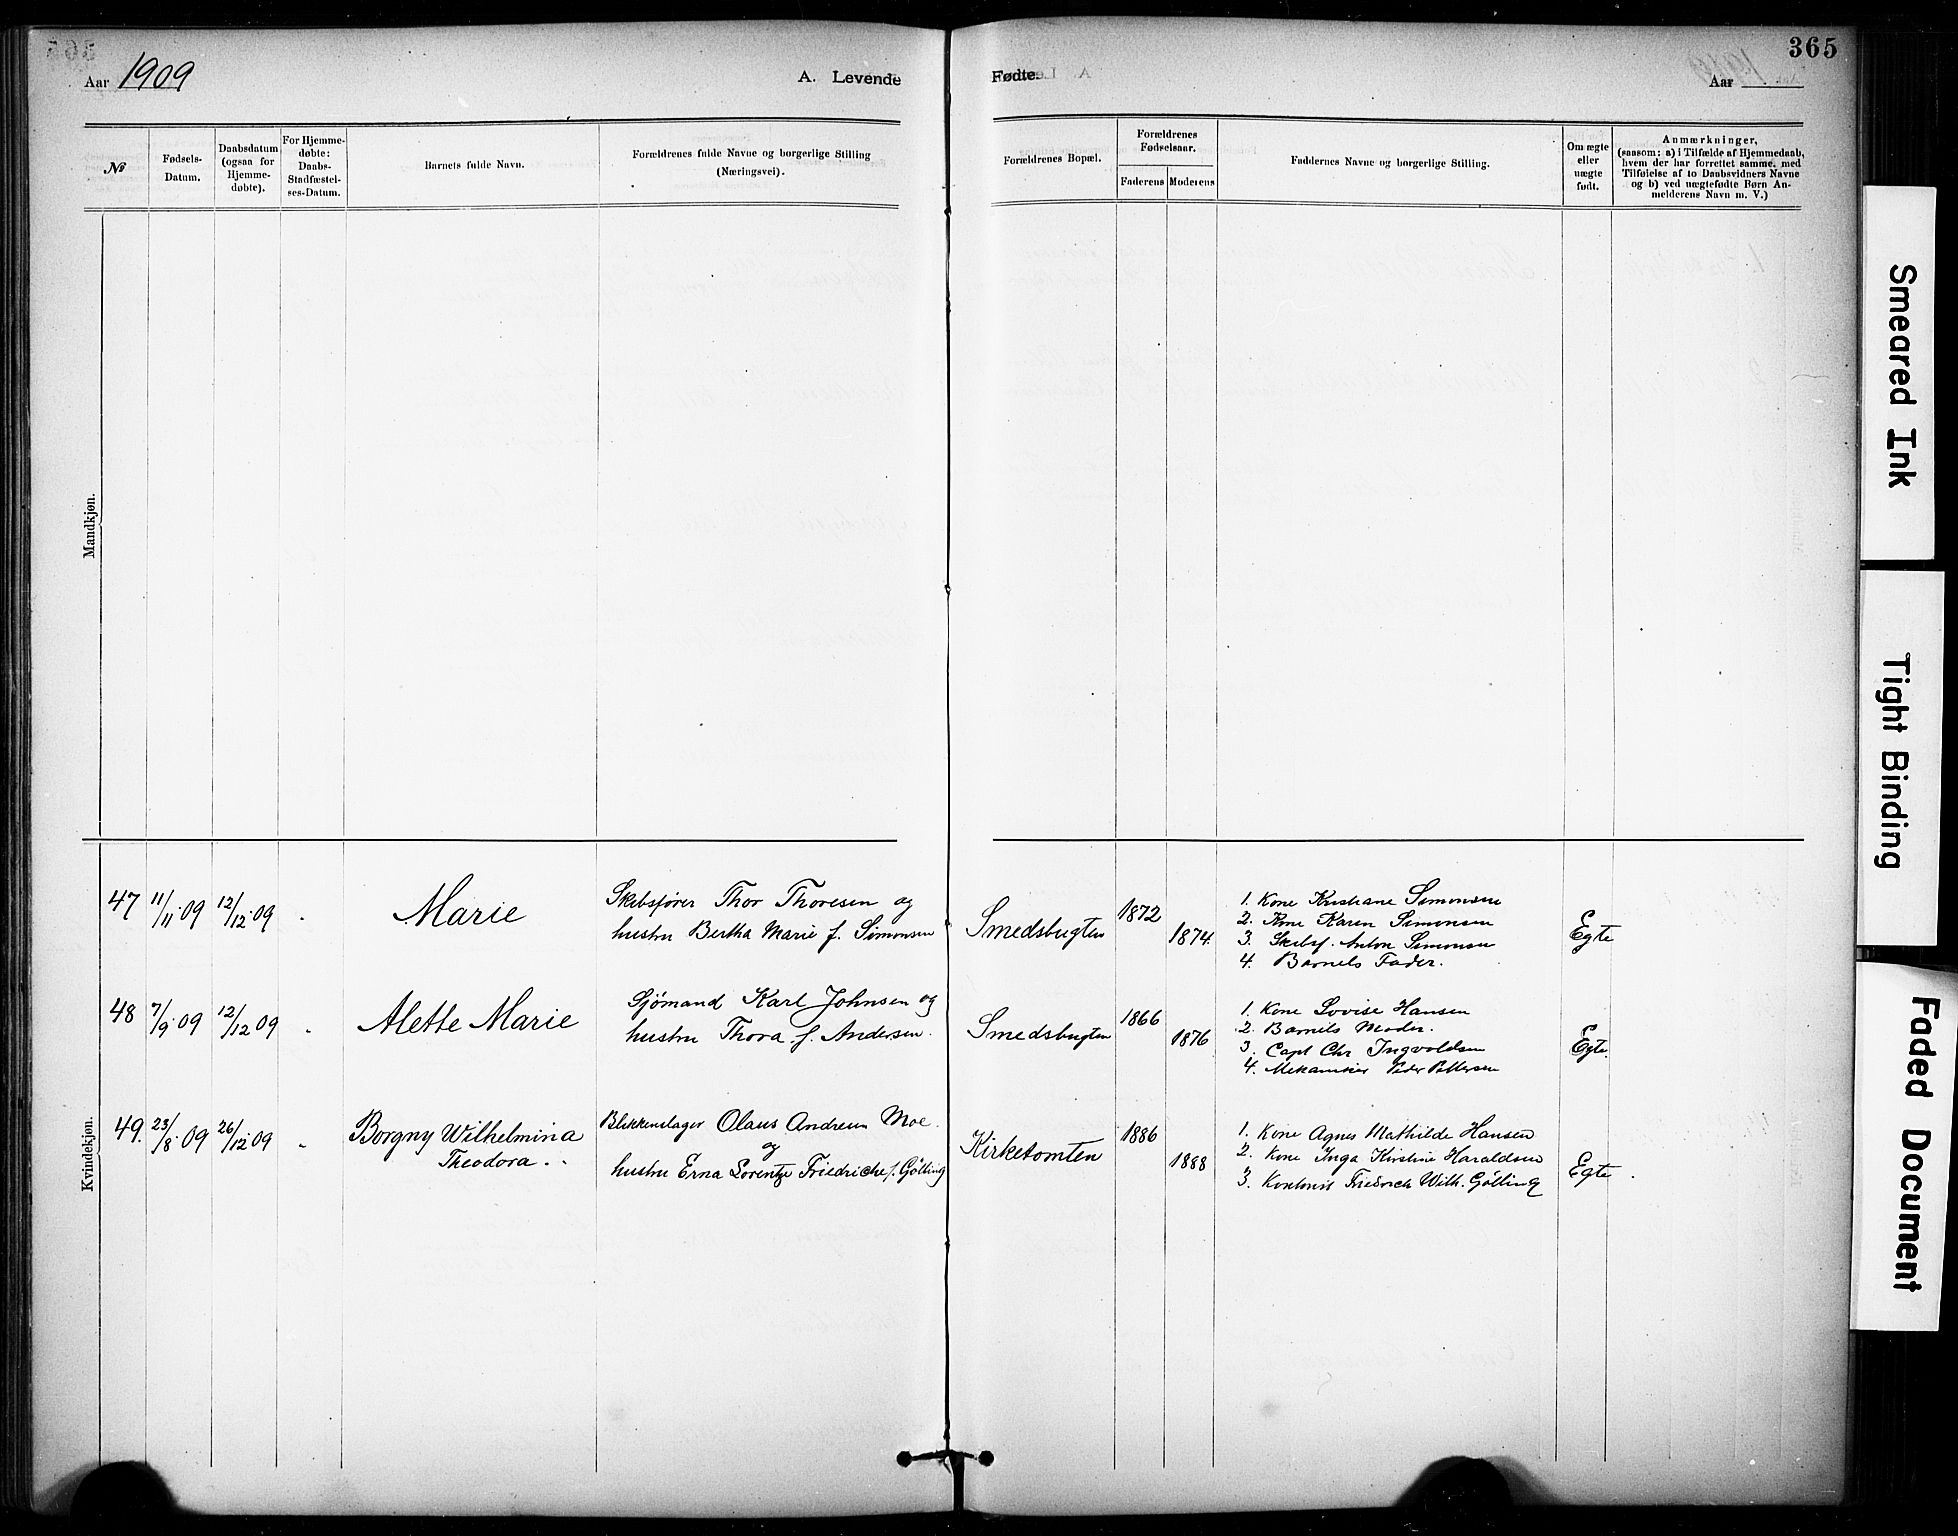 365
Aar 1909
A. Levende
Fødte
Aar
No
Fødsels-
Datum.
Daabsdatum
(ogsaa for
Hjemme-
døbte).
For Hjemme-
døbte:
Daabs-
Stadfæstel-
ses-Datum.
Barnets fulde Navn.
Forældrenes fulde Navne og borgerlige Stilling
(Næringsvei).
Forældrenes Bopæl.
Forældrenes
Fødselsaar.
Faderens
Moderens
Faddernes Navne og borgerlige Stilling.
Om ægte
eller
uægte
født.
Anmærkninger,
(saasom: a) i Tilfælde af Hjemmedaab,
hvem der har forrettet samme, med
Tilføielse af to Daabsvidners Navne
og b) ved uægtefødte Børn An-
melderens Navn m. V.)
Mandkjøn.
Kvindekjøn.
47 11/11 09 12/12 09 "
Marie
Skibsfører Thor Thoresen og
hustru Bertha Marie f. Simonsen
Smedsbugten
1872
1874
1. Kone Kristiane Simonsen
2. Kone Karen Simonsen
3. Skibsf. Anton Simonsen
4. Barnets Fader.
Egte
48 7/9 09 12/12 09 "
Alette Marie
Sjömand Karl Johnsen og
hustru Thora f. Andersen.
Smedsbugten
1866
1876
1. Kone Lovise Hansen
2. Barnets Moder.
3. Capt Chr Ingvoldsen
4. Mekaniker Peder Pettersen
Egte.
49. 23/8 09 26/12 09 "
Borgny Wilhelmina
Theodora.
Blikkenslager Olaus Andreas Moe
og
hustru Erna Lorentze Friedriche f. Gölling
Kirketomten
1886
1888
1. Kone Agnes Mathilde Hansen
2. Kone Inga Kirstine Haraldsen
3. Kontorist Friedrich Wilh. Gölling
Egte
Smeared Ink
Tight Binding
Faded Document